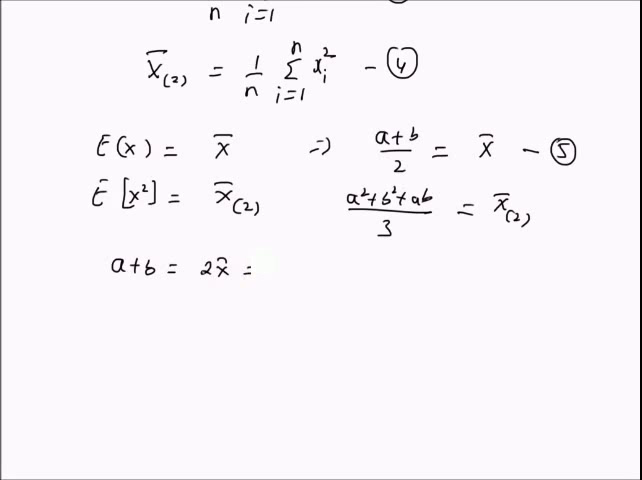 n i=1
X̄₍₂₎ = 1/n Σ i=1 n xᵢ² - ④
E(x) = x̄ ⇒ a+b/2 = x̄ - ⑤
E[x²] = x̄₍₂₎ a²+b²+ab/3 = x̄₍₂₎
a+b = 2x̄ =